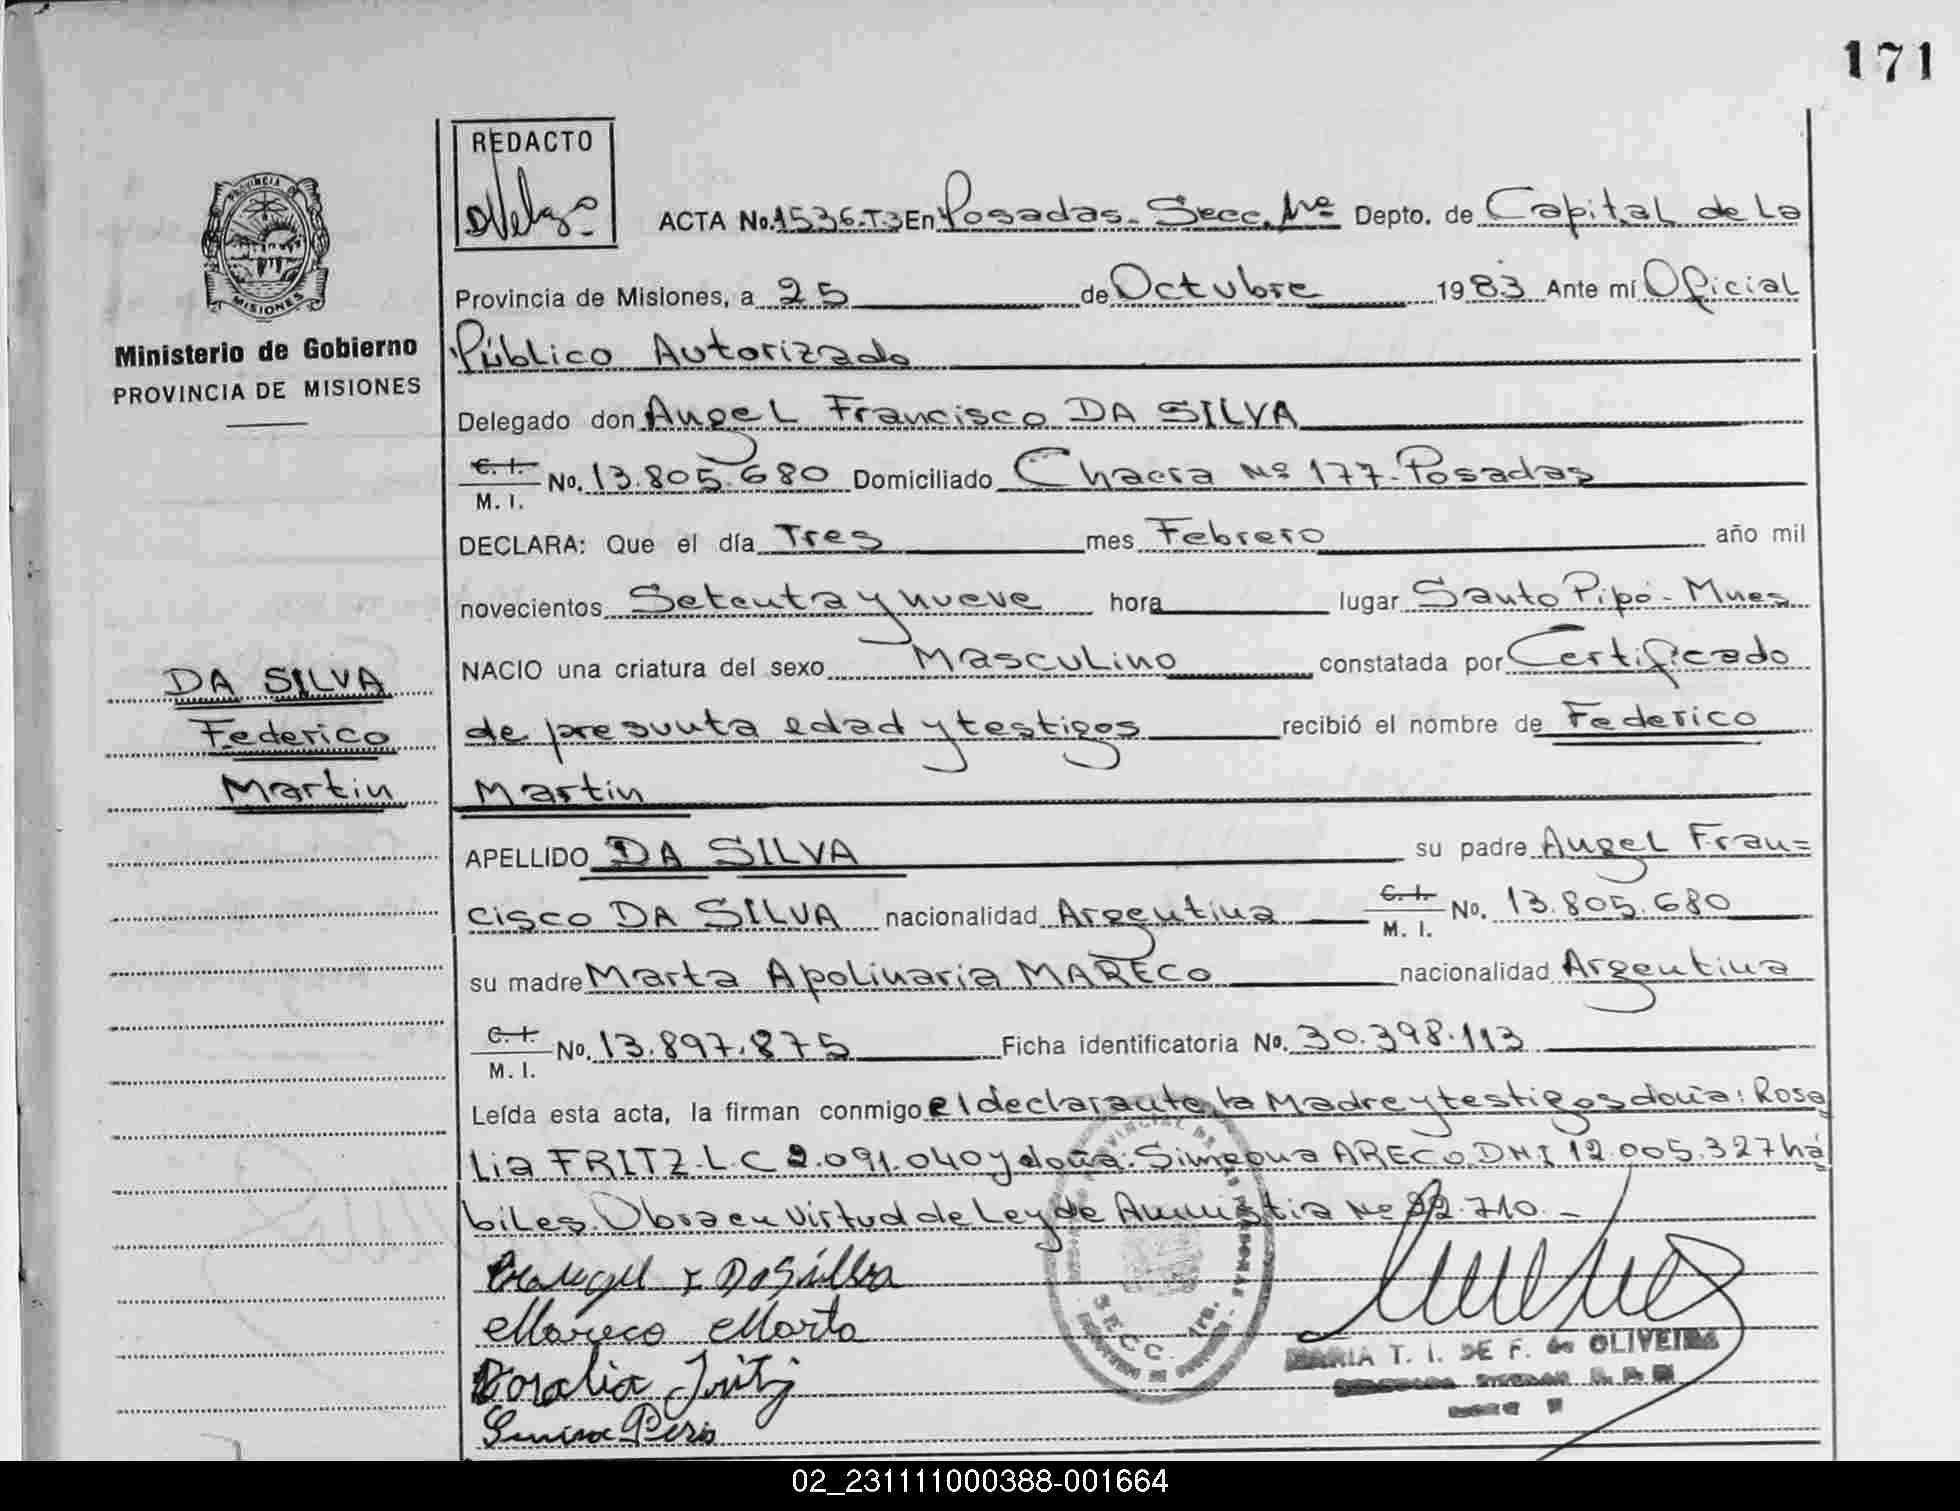 171
REDACTO
ACTA No. 1536-T.3 En Posadas - Secc. Depto. de Capital de La
Provincia de Misiones, a 25 de Octubre 1983 Ante mí Oficial
Público Autorizado
Delegado don Angel Francisco DA SILVA
C. I.
M. I. No. 13.805.680 Domiciliado Chacra Nº 177 - Posadas
DECLARA: Que el día Tres mes Febrero año mil
novecientos Setenta y nueve hora lugar Santo Pipó - Mnes
NACIO una criatura del sexo Masculino constatada por Certificado
de presunta edad y testigos recibió el nombre de Federico
Martin
APELLIDO DA SILVA su padre Angel Fran=
cisco DA SILVA nacionalidad Argentina C. I. M. I. No. 13.805.680
su madre Marta Apolinaria MARECO nacionalidad Argentina
C. I.
M. I. No. 13.897.875 Ficha identificatoria No. 30.398.113
Leída esta acta, la firman conmigo el declarante, la Madre y testigos doña: Rosa
lia FRITZ. L.C 2.091.040 y doña: Simeona ARECO. DNI 12.005.327 há
biles. Obra en Virtud de Ley de Amnistia Nº 22.710. -
Mareco Marta
Rosalia Fritz
PROVINCIA DE
MISIONES
Ministerio de Gobierno
PROVINCIA DE MISIONES
DA SILVA
Federico
Martin
SECC. 1ra.
MARIA T. I. DE F. de OLIVEIRA
02_231111000388-001664